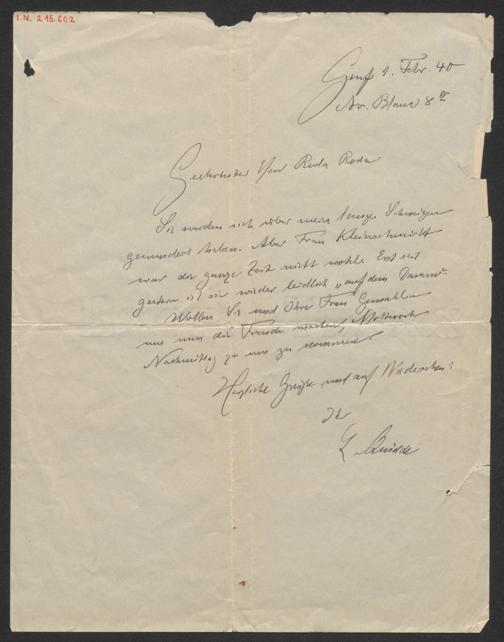 I.N. 215.602
Genf 1. Febr. 40
Av. Blanc 8 II
Geehrtester Herr Roda Roda
Sie werden sich über mein langes Schweigen
gewundert haben. Aber Frau Kleinschmidt
war die ganze Zeit nicht wohl. Erst seit
gestern ist sie wieder leidlich auf dem Damm.
Wollen Sie und Ihre Frau Gemahlin
uns nun die Freude machen, Mittwoch
Nachmittag zu uns zu kommen?
Herzliche Grüße und auf Wiedersehen!
Ihr
L. Quidde